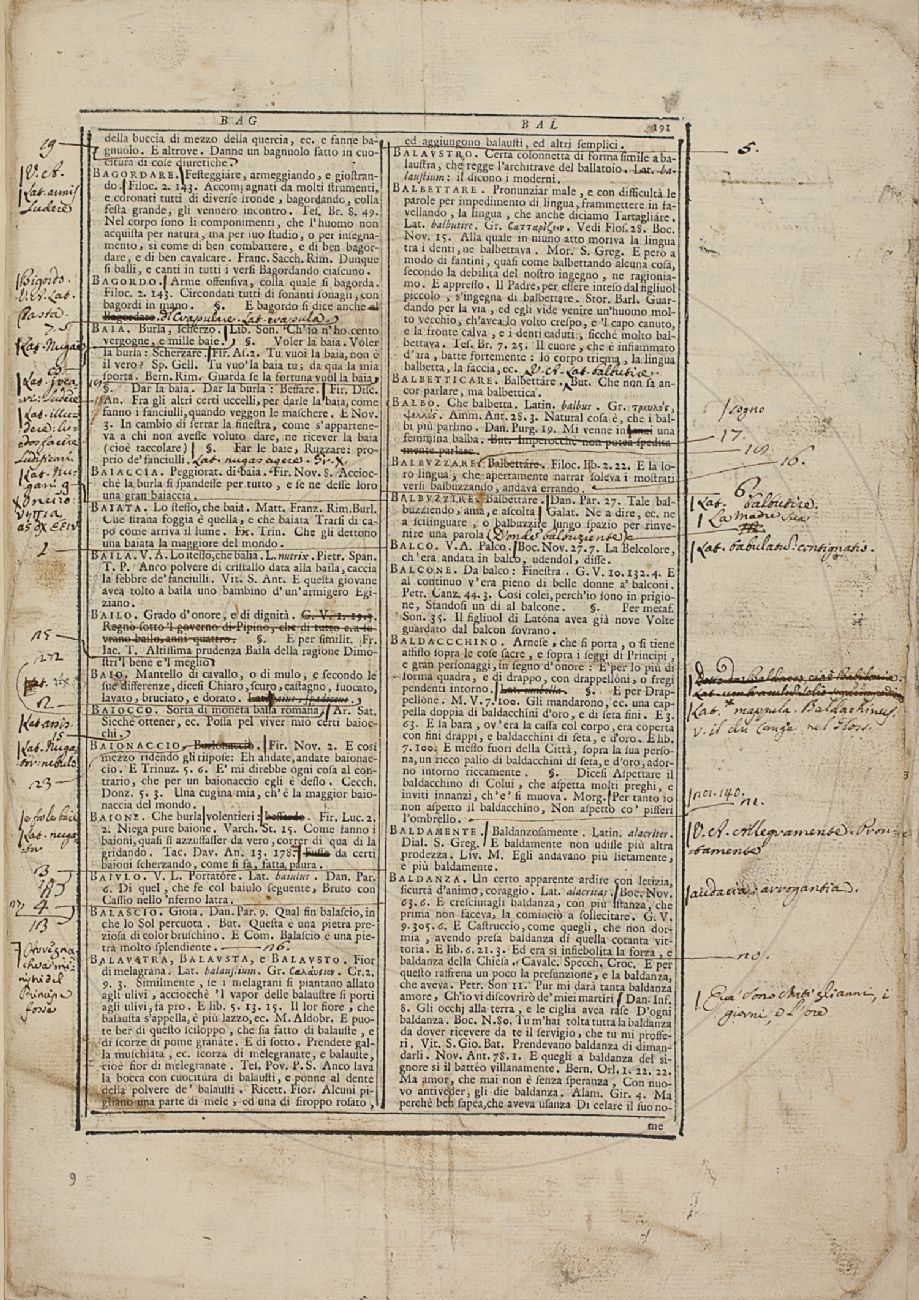 BAG
BAL
191
della buccia di mezzo della quercia, ec. e fanne ba-
gnuolo. E altrove. Danne un bagnuolo fatto in cuo-
citura di cose diuretiche.
BAGORDARE. Festeggiare, armeggiando, e giostran-
do. Filoc. 2. 143. Accompagnati da molti strumenti,
e coronati tutti di diverse fronde, bagordando, colla
festa grande, gli vennero incontro. Tes. Br. 8. 49.
Nel corpo sono li componimenti, che l'huomo non
acquista per natura, ma per suo studio, o per insegna-
mento, sì come di ben combattere, e di ben bagor-
dare, e di ben cavalcare. Franc. Sacch. Rim. Dunque
si balli, e canti in tutti i versi Bagordando ciascuno.
BAGORDO. Arme offensiva, colla quale si bagorda.
Filoc. 2. 143. Circondati tutti di sonanti sonagli, con
bagordi in mano. §. E bagordo si dice anche al
Bagordare.
BAIA. Burla, scherzo. Lib. Son. Ch'io n'ho cento
vergogne, e mille baie. §. Voler la baia. Voler
la burla: Scherzare. Fir. As. 2. Tu vuoi la baia, non è
il vero? Sp. Gell. Tu vuo'la baia tu; da qua la mia
sporta. Bern. Rim. Guarda se la fortuna vuol la baia,
§. Dar la baia. Dar la burla: Beffare. Fir. Disc.
An. Fra gli altri uccelli, per darle la baia, come
fanno i fanciulli, quando veggon le maschere. E Nov.
3. In cambio di serrar la finestra, come s'apparteneva
a chi non avesse voluto dare, ne ricever la baia
(cioè taccolare) §. Far le baie, Ruzzare: pro-
prio de' fanciulli. Lat. nugas agere. Gr.
BAIACCIA. Peggiorat. di baia. Fir. Nov. 8. Accioc-
chè la burla si spandesse per tutto, e se ne desse loro
una gran baiaccia.
BAIATA. Lo stesso, che baia. Matt. Franz. Rim. Burl.
Che strana foggia è quella, e che baiata Trarsi di ca-
po come arriva il lume. Fr. Trin. Che gli dettono
una baiata la maggiore del mondo.
BAILA. V. A. Lo stesso, che balia. L. nutrix. Pietr. Span.
T. P. Anco polvere di cristallo data alla baila, caccia
la febbre de' fanciulli. Vit. S. Ant. E questa giovane
avea tolto a baila uno bambino d'un'armigero Egi-
ziano.
BAILO. Grado d'onore, e di dignità. G. V. 1. 19.
Regnò sotto'l governo di Pipino, che di tutto era so-
vrano bailo, anni quattro. §. E per similit. Fr.
Iac. T. Altissima prudenza Baila della ragione Dimo-
stri'l bene e'l meglio
BAIO. Mantello di cavallo, o di mulo, e secondo le
sue differenze, dicesi Chiaro, scuro, castagno, fuocato,
lavato, bruciato, e dorato.
BAIOCCO. Sorta di moneta bassa romana, Ar. Sat.
Sicchè ottener, ec. Possa pel viver mio certi baioc-
chi.
BAIONACCIO. Burlonaccio. Fir. Nov. 2. E così
mezzo ridendo gli rispose: Eh andate, andate baionac-
cio. E Trinuz. 5. 6. E' mi direbbe ogni cosa al con-
trario, che per un baionaccio egli è desso. Cecch.
Donz. 5. 3. Una cugina mia, ch'è la maggior baio-
naccia del mondo.
BAIONE. Che burla volentieri: beffardo. Fir. Luc. 2.
2. Niega pure baione. Varch. St. 15. Come fanno i
baioni, quasi si azzuffasser da vero, correr di qua di la
gridando. Tac. Dav. An. 13. 178. Fusse da certi
baioni scherzando, come si fa, fatta paura.
BAIVLO. V. L. Portatore. Lat. baiulus. Dan. Par.
6. Di quel, che fe col baiulo seguente, Bruto con
Cassio nello'nferno latra.
BALASCIO. Gioia. Dan. Par. 9. Qual fin balascio, in
che lo Sol percuota. But. Questa è una pietra pre-
ziosa di color bruschino. E Com. Balascio è una pie-
tra molto splendiente.
BALAVSTRA, BALAVSTA, e BALAVSTO. Fior
di melagrana. Lat. balaustium. Gr. Cr. 2.
9. 3. Similmente, se i melagrani si piantano allato
agli ulivi, acciocchè 'l vapor delle balaustre si porti
agli ulivi, fa pro. E lib. 5. 13. 15. Il lor fiore, che
balausta s'appella, è più lazzo, ec. M. Aldobr. E puo-
te ber di questo sciloppo, che sia fatto di balauste, e
di scorze di pome granate. E di sotto. Prendete gal-
la muschiata, ec. scorza di melegranate, e balauste,
cioè fior di melegranate. Tes. Pov. P. S. Anco lava
la bocca con cuocitura di balausti, e ponne al dente
della polvere de' balausti. Ricett. Fior. Alcuni pi-
gliano una parte di mele, ed una di siroppo rosato,
ed aggiungono balausti, ed altri semplici.
BALAVSTRO. Certa colonnetta di forma simile a ba-
laustra, che regge l'architrave del ballatoio. Lat. ba-
laustium: il dicono i moderni.
BALBETTARE. Pronunziar male, e con difficultà le
parole per impedimento di lingua, frammettere in fa-
vellando, la lingua, che anche diciamo Tartagliare.
Lat. balbutire. Gr. Vedi Flos. 28. Boc.
Nov. 15. Alla quale in niuno atto moriva la lingua
tra i denti, ne balbettava. Mor. S. Greg. E però a
modo di fantini, quasi come balbettando alcuna cosa,
secondo la debilità del nostro ingegno, ne ragionia-
mo. E appresso. Il Padre, per essere inteso dal figliuol
piccolo, s'ingegna di balbettare. Stor. Barl. Guar-
dando per la via, ed egli vide venire un'huomo mol-
to vecchio, ch'avea lo volto crespo, e'l capo canuto,
e la fronte calva, e i denti caduti, sicchè molto bal-
bettava. Tes. Br. 7. 25. Il cuore, che è infiammato
d'ira, batte fortemente: lo corpo triema, la lingua
balbetta, la faccia, ec. V. A. Lat. balbutire
BALBETTICARE. Balbettare. But. Che non sa an-
cor parlare, ma balbettica.
BALBO. Che balbetta. Latin. balbus. Gr.
Amm. Ant. 28. 3. Natural cosa è, che i bal-
bi più parlino. Dan. Purg. 19. Mi venne una
femmina balba. But. Imperocchè non potea spedita-
mente parlare.
BALBVZZARE. Balbettare. Filoc. lib. 2. 22. E la lo-
ro lingua, che apertamente narrar soleva i mostrati
versi balbuzzando, andava errando.
BALBVZZIRE. Balbettare. Dan. Par. 27. Tale bal-
buzziendo, ama, e ascolta Galat. Ne a dire, ec. ne
a scilinguare, o balbuzzire lungo spazio per rinve-
nire una parola (Donde balbuziente)
BALCO. V. A. Palco. Boc. Nov. 27. 7. La Belcolore,
ch'era andata in balco, udendol, disse.
BALCONE. Da balco: Finestra. G. V. 10. 132. 4. E
al continuo v'era pieno di belle donne a' balconi.
Petr. Canz. 44. 3. Così colei, perch'io sono in prigio-
ne, Standosi un dì al balcone. §. Per metaf.
Son. 35. Il figliuol di Latona avea già nove Volte
guardato dal balcon sovrano.
BALDACCHINO. Arnese, che si porta, o si tiene
affisso sopra le cose sacre, e sopra i seggi di Principi,
e gran personaggi, in segno d'onore: E' per lo più di
forma quadra, e di drappo, con drappelloni, o fregi
pendenti intorno. Lat. umbella. §. E per Drap-
pellone. M. V. 7. 100. Gli mandarono, ec. una cap-
pella doppia di baldacchini d'oro, e di seta fini. E 3.
63. E la bara, ov'era la cassa col corpo, era coperta
con fini drappi, e baldacchini di seta, e d'oro. E lib.
7. 100. E messo fuori della Città, sopra la sua perso-
na, un ricco palio di baldacchini di seta, e d'oro, ador-
no intorno riccamente. §. Dicesi Aspettare il
baldacchino di Colui, che aspetta molti preghi, e
inviti innanzi, ch'e' si muova. Morg. Per tanto io
non aspetto il baldacchino, Non aspetto co' pifferi
l'ombrello.
BALDAMENTE. Baldanzosamente. Latin. alacriter.
Dial. S. Greg. E baldamente non udisse più altra
prodezza. Liv. M. Egli andavano più lietamente,
e più baldamente.
BALDANZA. Un certo apparente ardire con letizia,
sicurtà d'animo, coraggio. Lat. alacritas. Boc. Nov.
63. 6. E cresciutagli baldanza, con più istanza, che
prima non faceva, la cominciò a sollecitare. G. V.
9. 305. 6. E Castruccio, come quegli, che non dor-
mia, avendo presa baldanza di quella cotanta vit-
toria. E lib. 6. 21. 3. Ed era sì infiebolita la forza, e
baldanza della Chiesa. Cavalc. Specch. Croc. E per
questo raffrena un poco la presunzione, e la baldanza,
che aveva. Petr. Son 11. Pur mi darà tanta baldanza
amore, Ch'io vi discovrirò de' miei martiri. Dan. Inf.
8. Gli occhj alla terra, e le ciglia avea rase D'ogni
baldanza. Boc. N. 80. Tu m'hai tolta tutta la baldanza
da dover ricevere da te il servigio, che tu mi profferi,
Vit. S. Gio. Bat. Prendevano baldanza di diman-
darli. Nov. Ant. 78. 1. E quegli a baldanza del si-
gnore sì il battéo villanamente. Bern. Orl. 1. 22. 22.
Ma amor, che mai non è senza speranza, Con nuo-
vo antiveder, gli die baldanza. Alam. Gir. 4. Ma
perchè ben sapea, che aveva usanza Di celare il suo no-
me
5.
17.
16.
6.
Lat. balbutire.
La madre sua
Lat. tabulatus: contignatio.
Lat. mappula. Baldachinus.
V. A. Allegramente. Pron-
tamente
audacia: arrogantia.
Già sono stati gli anni, i
giorni, e l'ore
9